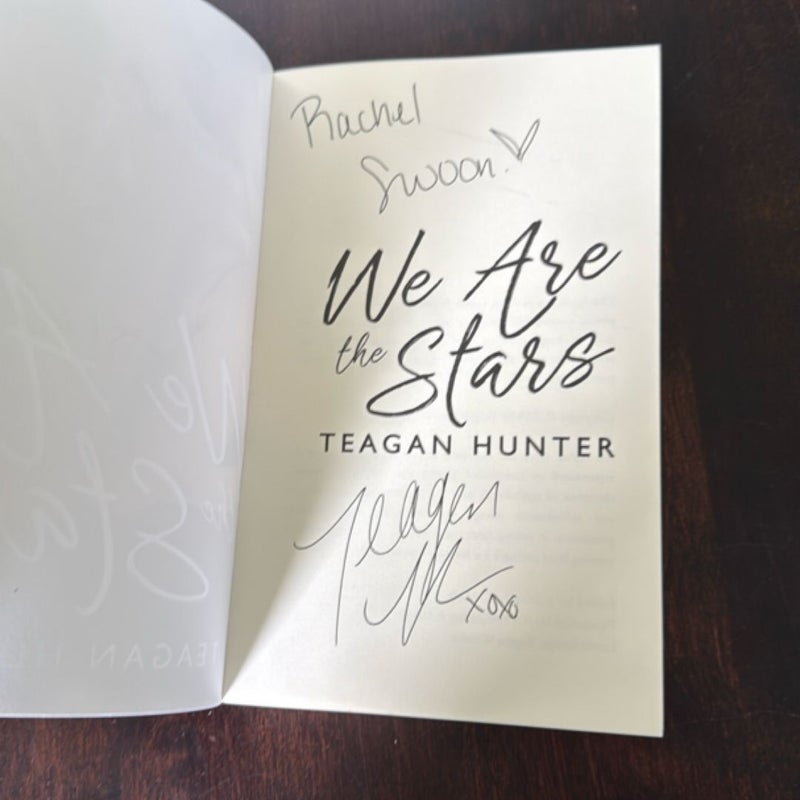 Rachel
Swoon.♡
We Are
the Stars
TEAGAN HUNTER
Teagan
H
xoxo